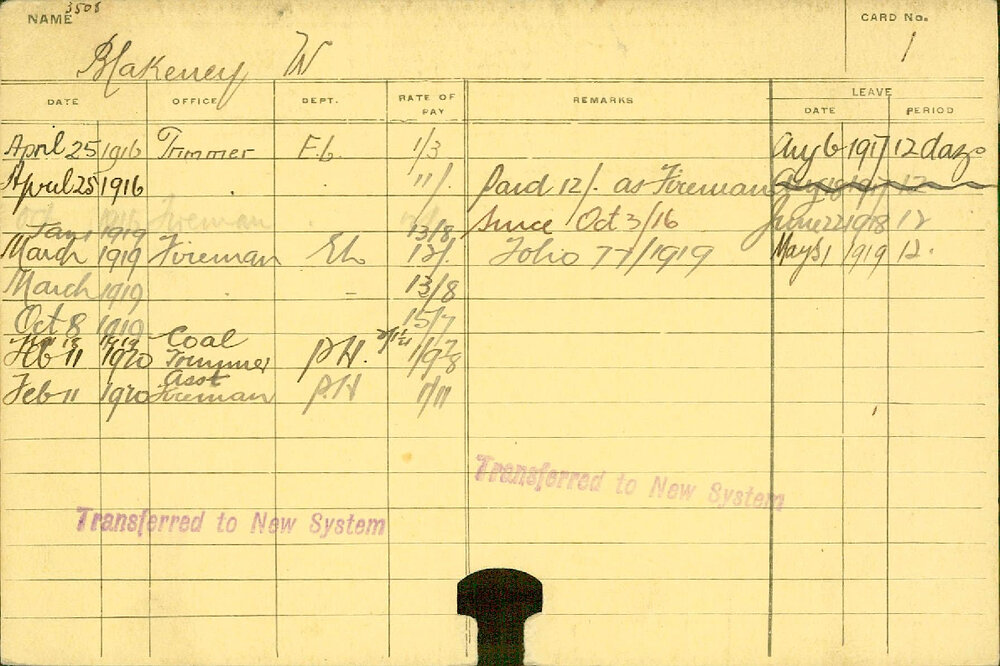 NAME 3508 CARD No.
Blakeney W 1
DATE OFFICE DEPT. RATE OF PAY REMARKS LEAVE
DATE PERIOD
April 25 1916 Trimmer E.L. 1/3 Aug 6 1917 12 days
April 25 1916 11/. paid 12/. as Fireman
Fireman since Oct 3/16 June 22 1918 12
Jan 1 1919 13/8
March 1919 Fireman EL 12/. Folio 77/1919 May 31 1919 12.
March 1919 13/8
Oct 8 1919 15/7
Feb 11 1920 Coal Trimmer P.H.
Feb 11 1920 Asst Fireman P.H 1/11
Transferred to New System
Transferred to New System